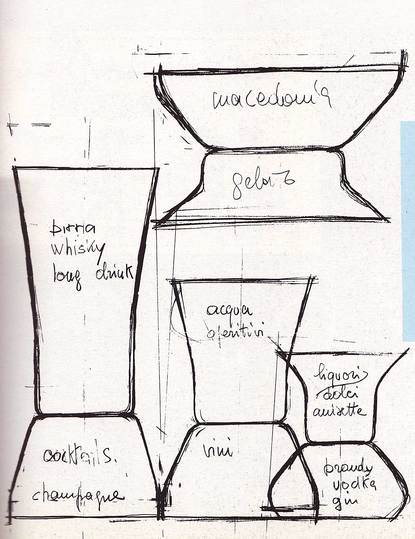 macedonia
gelato
birra
whisky
long drink
cocktails.
champagne
acqua
aperitivi
vini
liquori
dolci
anisette
brandy
vodka
gin